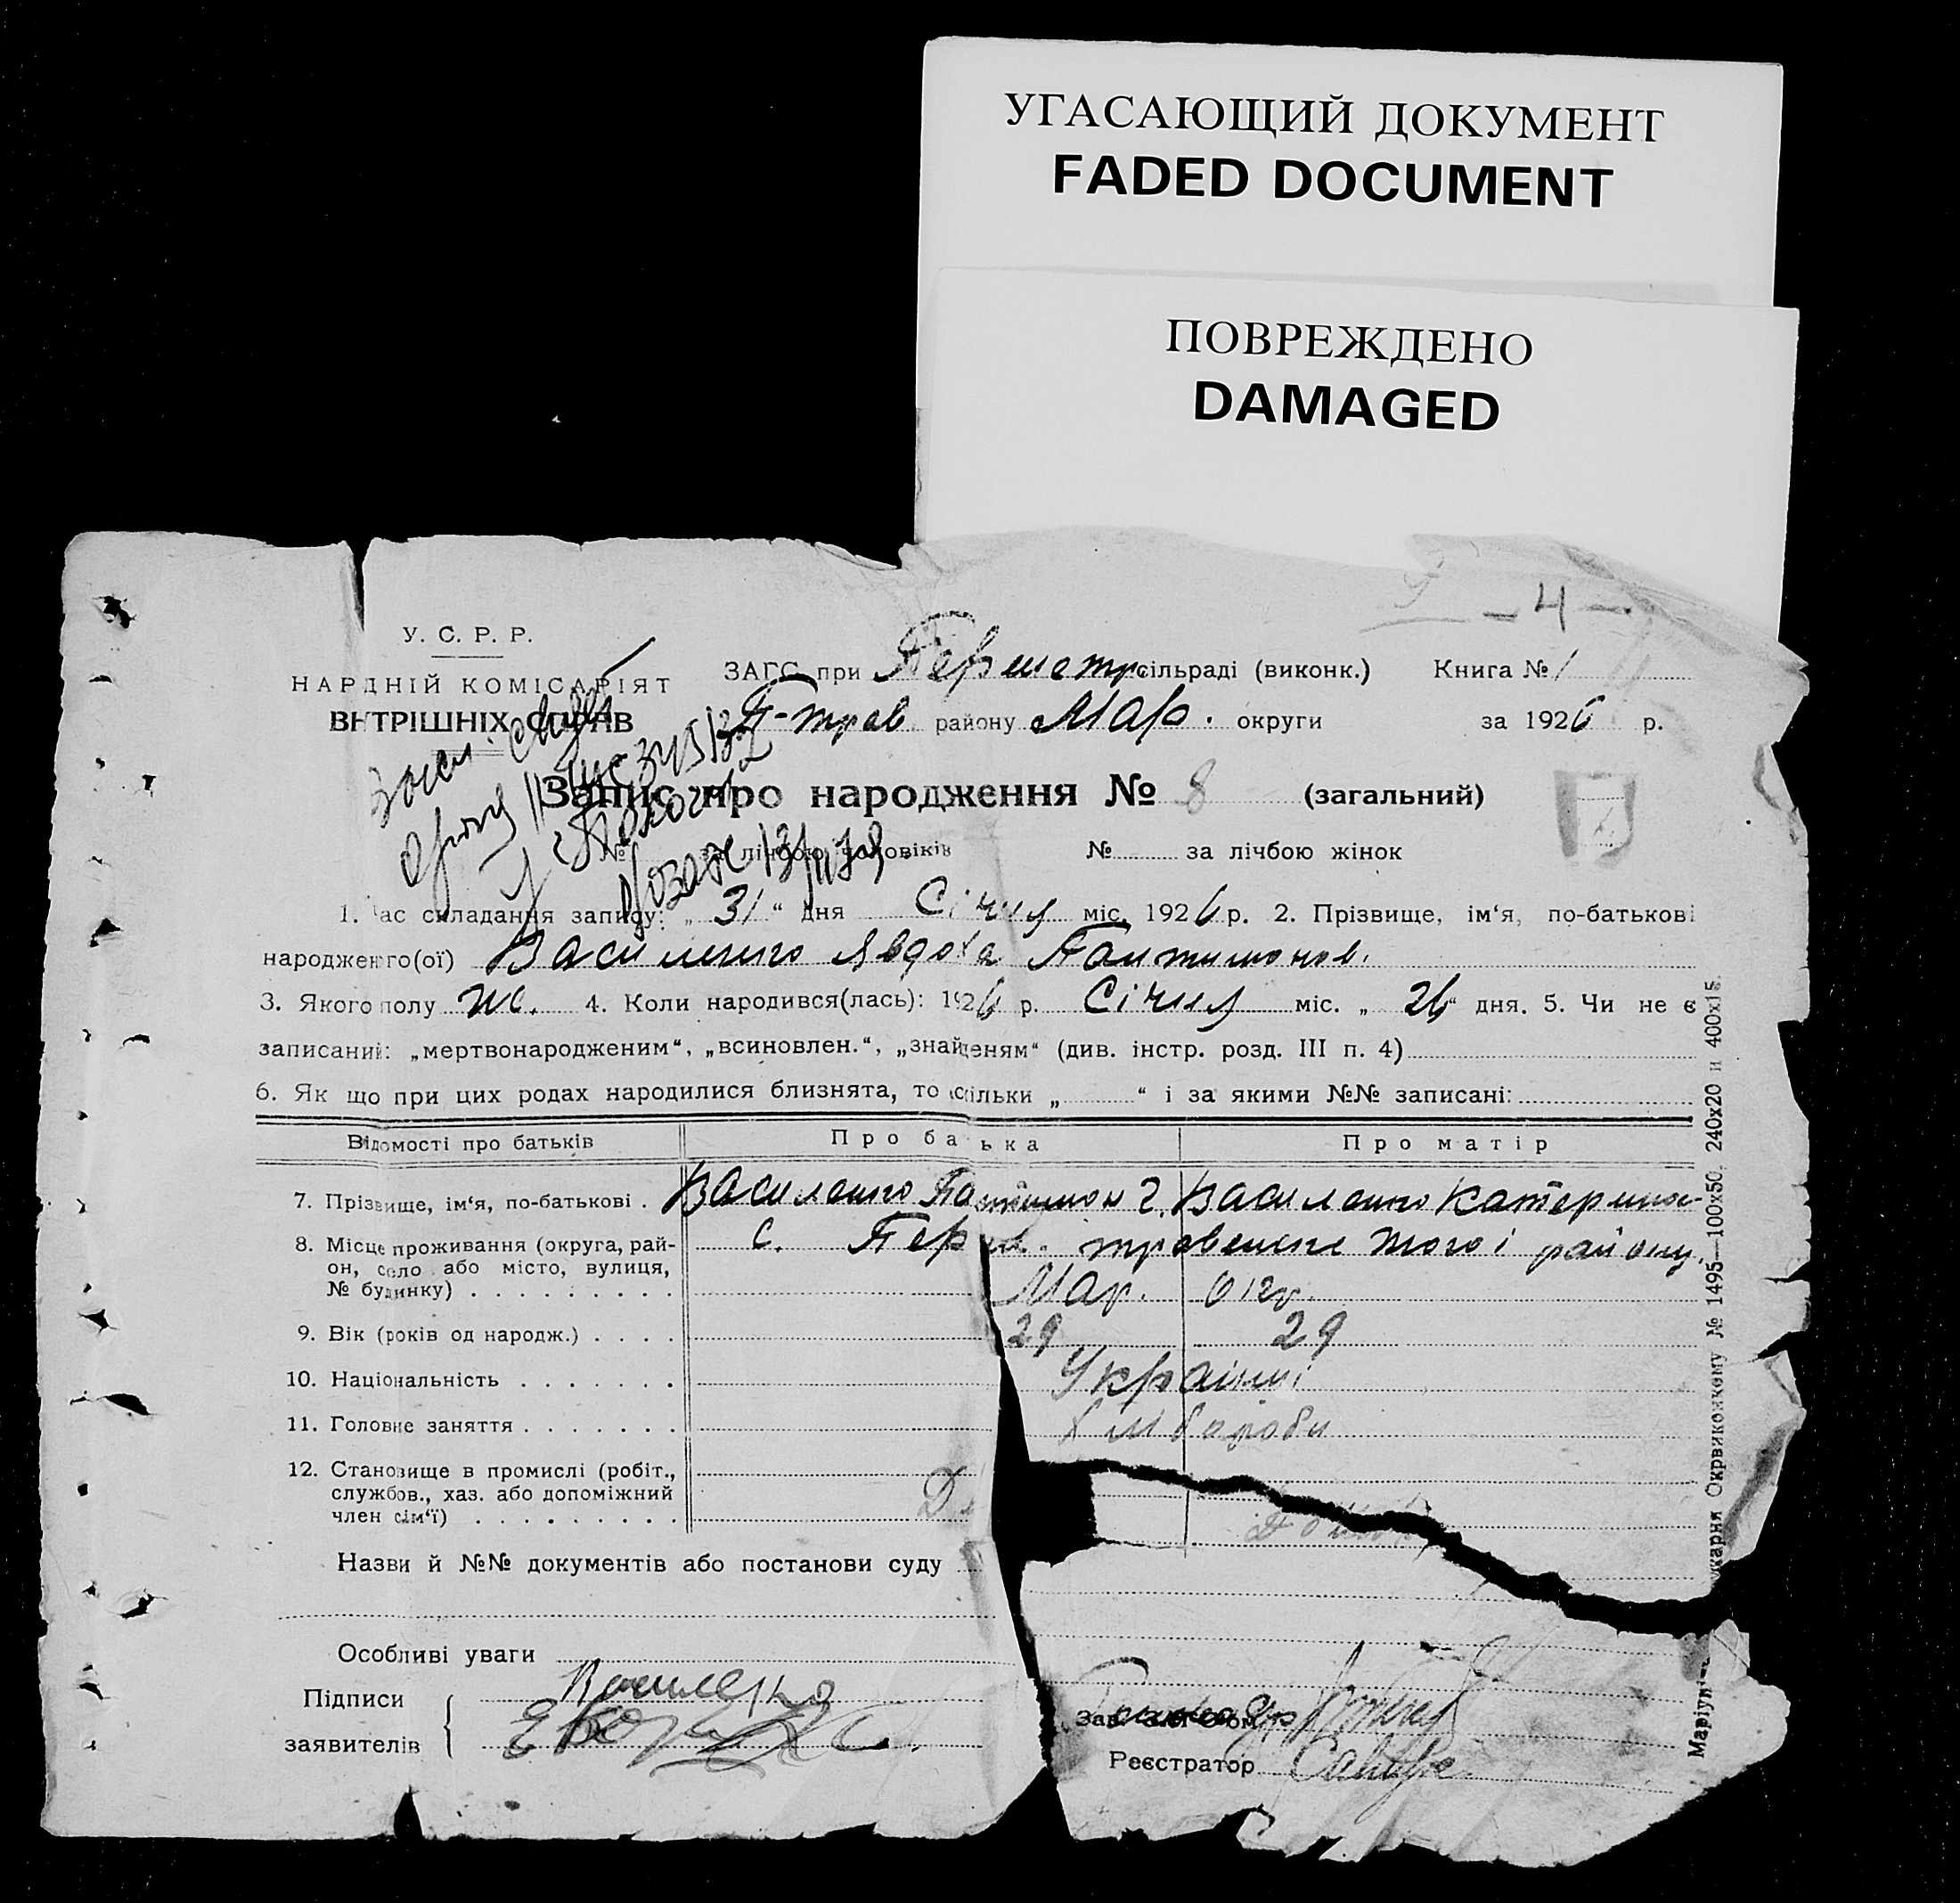 УГАСАЮЩИЙ ДОКУМЕНТ
FADED DOCUMENT
ПОВРЕЖДЕНО
DAMAGED
- 4 -
У. С. Р. Р.
НАРДНІЙ КОМІСАРІЯТ
ВНТРІШНІХ СПРАВ
ЗАГС при Першотр. сільраді (виконк.) Книга № 1
П-трав району Мар. округи за 1926 р.
Запис про народження № 8 (загальний)
№ за лічбою чоловіків № за лічбою жінок
1. Час складання запису: „ 31 “ дня Січня міс. 1926 р. 2. Прізвище, ім‘я, по-батькові
народженго(ої) Василенко Явдоха Пантимонов.
3. Якого полу жі. 4. Коли народився(лась): 1926 р. Січня міс. „ 26 “ дня. 5. Чи не є
записаний: „мертвонародженим“, „всиновлен.“, „знайденям“ (див. інстр. розд. III п. 4)
6. Як що при цих родах народилися близнята, то скільки „ “ і за якими №№ записані:
Відомості про батьків Про батька Про матір
7. Прізвище, ім‘я, по-батькові . Василенко Пантимон Г. Василенко Катерина
8. Місце проживання (округа, рай-
он, село або місто, вулиця,
№ будинку) . . . . . . . . .
с. Перш. травенське того і району
Мар. Окр.
9. Вік (років од народж.) . . . . 29 29
10. Національність . . . . . . . Українці
11. Головне заняття . . . . . . . Хлібороби
12. Становище в промислі (робіт.,
службов., хаз. або допоміжний
член сім‘ї) . . . . . . . . .
Назви й №№ документів або постанови суду
Особливі уваги
Підписи
заявителів
Василенко
Зав. ЗАГС‘ом
Реєстратор
Маріуп
карня Окрвиконкому № 1495—100x50, 240x20 и 400x15